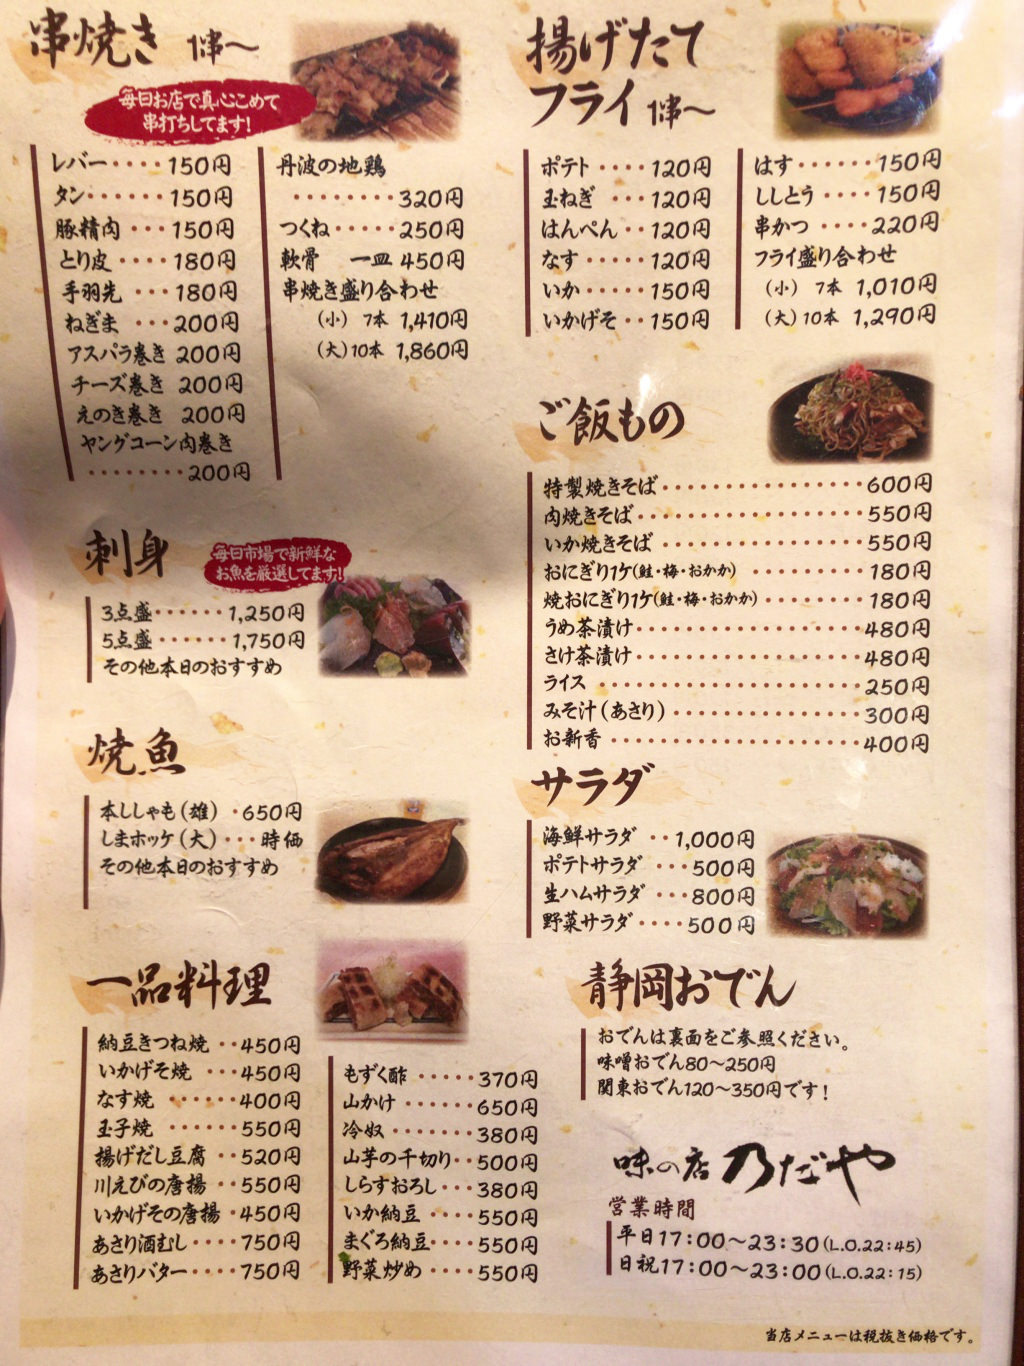 串焼き 1串～
毎日お店で真心こめて
串打ちしてます!
レバー････150円
タン･････150円
豚精肉･･･150円
とり皮････180円
手羽先･･･180円
ねぎま･･･200円
アスパラ巻き 200円
チーズ巻き 200円
えのき巻き 200円
ヤングコーン肉巻き
････････200円
丹波の地鶏
････････320円
つくね･････250円
軟骨 一皿 450円
串焼き盛り合わせ
(小) 7本 1,410円
(大)10本 1,860円
揚げたて
フライ 1串～
ポテト････120円
玉ねぎ･･･120円
はんぺん･･120円
なす･････120円
いか･････150円
いかげそ･･150円
はす･･････150円
ししとう････150円
串かつ････220円
フライ盛り合わせ
(小) 7本 1,010円
(大)10本 1,290円
ご飯もの
特製焼きそば････････････････600円
肉焼きそば･･････････････････550円
いか焼きそば････････････････550円
おにぎり1ケ(鮭・梅・おかか)･････････180円
焼おにぎり1ケ(鮭・梅・おかか)････････180円
うめ茶漬け･･････････････････480円
さけ茶漬け･･････････････････480円
ライス･････････････････････250円
みそ汁(あさり)･･･････････････300円
お新香････････････････････400円
刺身
毎日市場で新鮮な
お魚を厳選してます!
3点盛･･････1,250円
5点盛･･････1,750円
その他本日のおすすめ
焼魚
本ししゃも(雄)･650円
しまホッケ(大)･･･時価
その他本日のおすすめ
サラダ
海鮮サラダ･･1,000円
ポテトサラダ･･･500円
生ハムサラダ･･･800円
野菜サラダ････500円
一品料理
納豆きつね焼･･450円
いかげそ焼･･･450円
なす焼･･････400円
玉子焼･･････550円
揚げだし豆腐･･520円
川えびの唐揚･･550円
いかげその唐揚･450円
あさり酒むし････750円
あさりバター････750円
もずく酢･････370円
山かけ･･････650円
冷奴･･･････380円
山芋の千切り･･500円
しらすおろし･･･380円
いか納豆････550円
まぐろ納豆････550円
野菜炒め････550円
静岡おでん
おでんは裏面をご参照ください。
味噌おでん80～250円
関東おでん120～350円です!
味の店 乃だや
営業時間
平日17:00～23:30(L.O.22:45)
日祝17:00～23:00(L.O.22:15)
当店メニューは税抜き価格です。